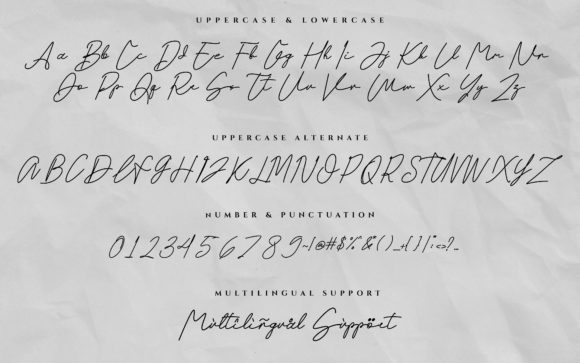 UPPERCASE & LOWERCASE
Aa Bb Cc Dd Ee Ff Gg Hh Ii Jj Kk Ll Mm Nn
Oo Pp Qq Rr Ss Tt Uu Vv Ww Xx Yy Zz
UPPERCASE ALTERNATE
A B C D E F G H I J K L M N O P Q R S T U V W X Y Z
NUMBER & PUNCTUATION
0 1 2 3 4 5 6 7 8 9
MULTILINGUAL SUPPORT